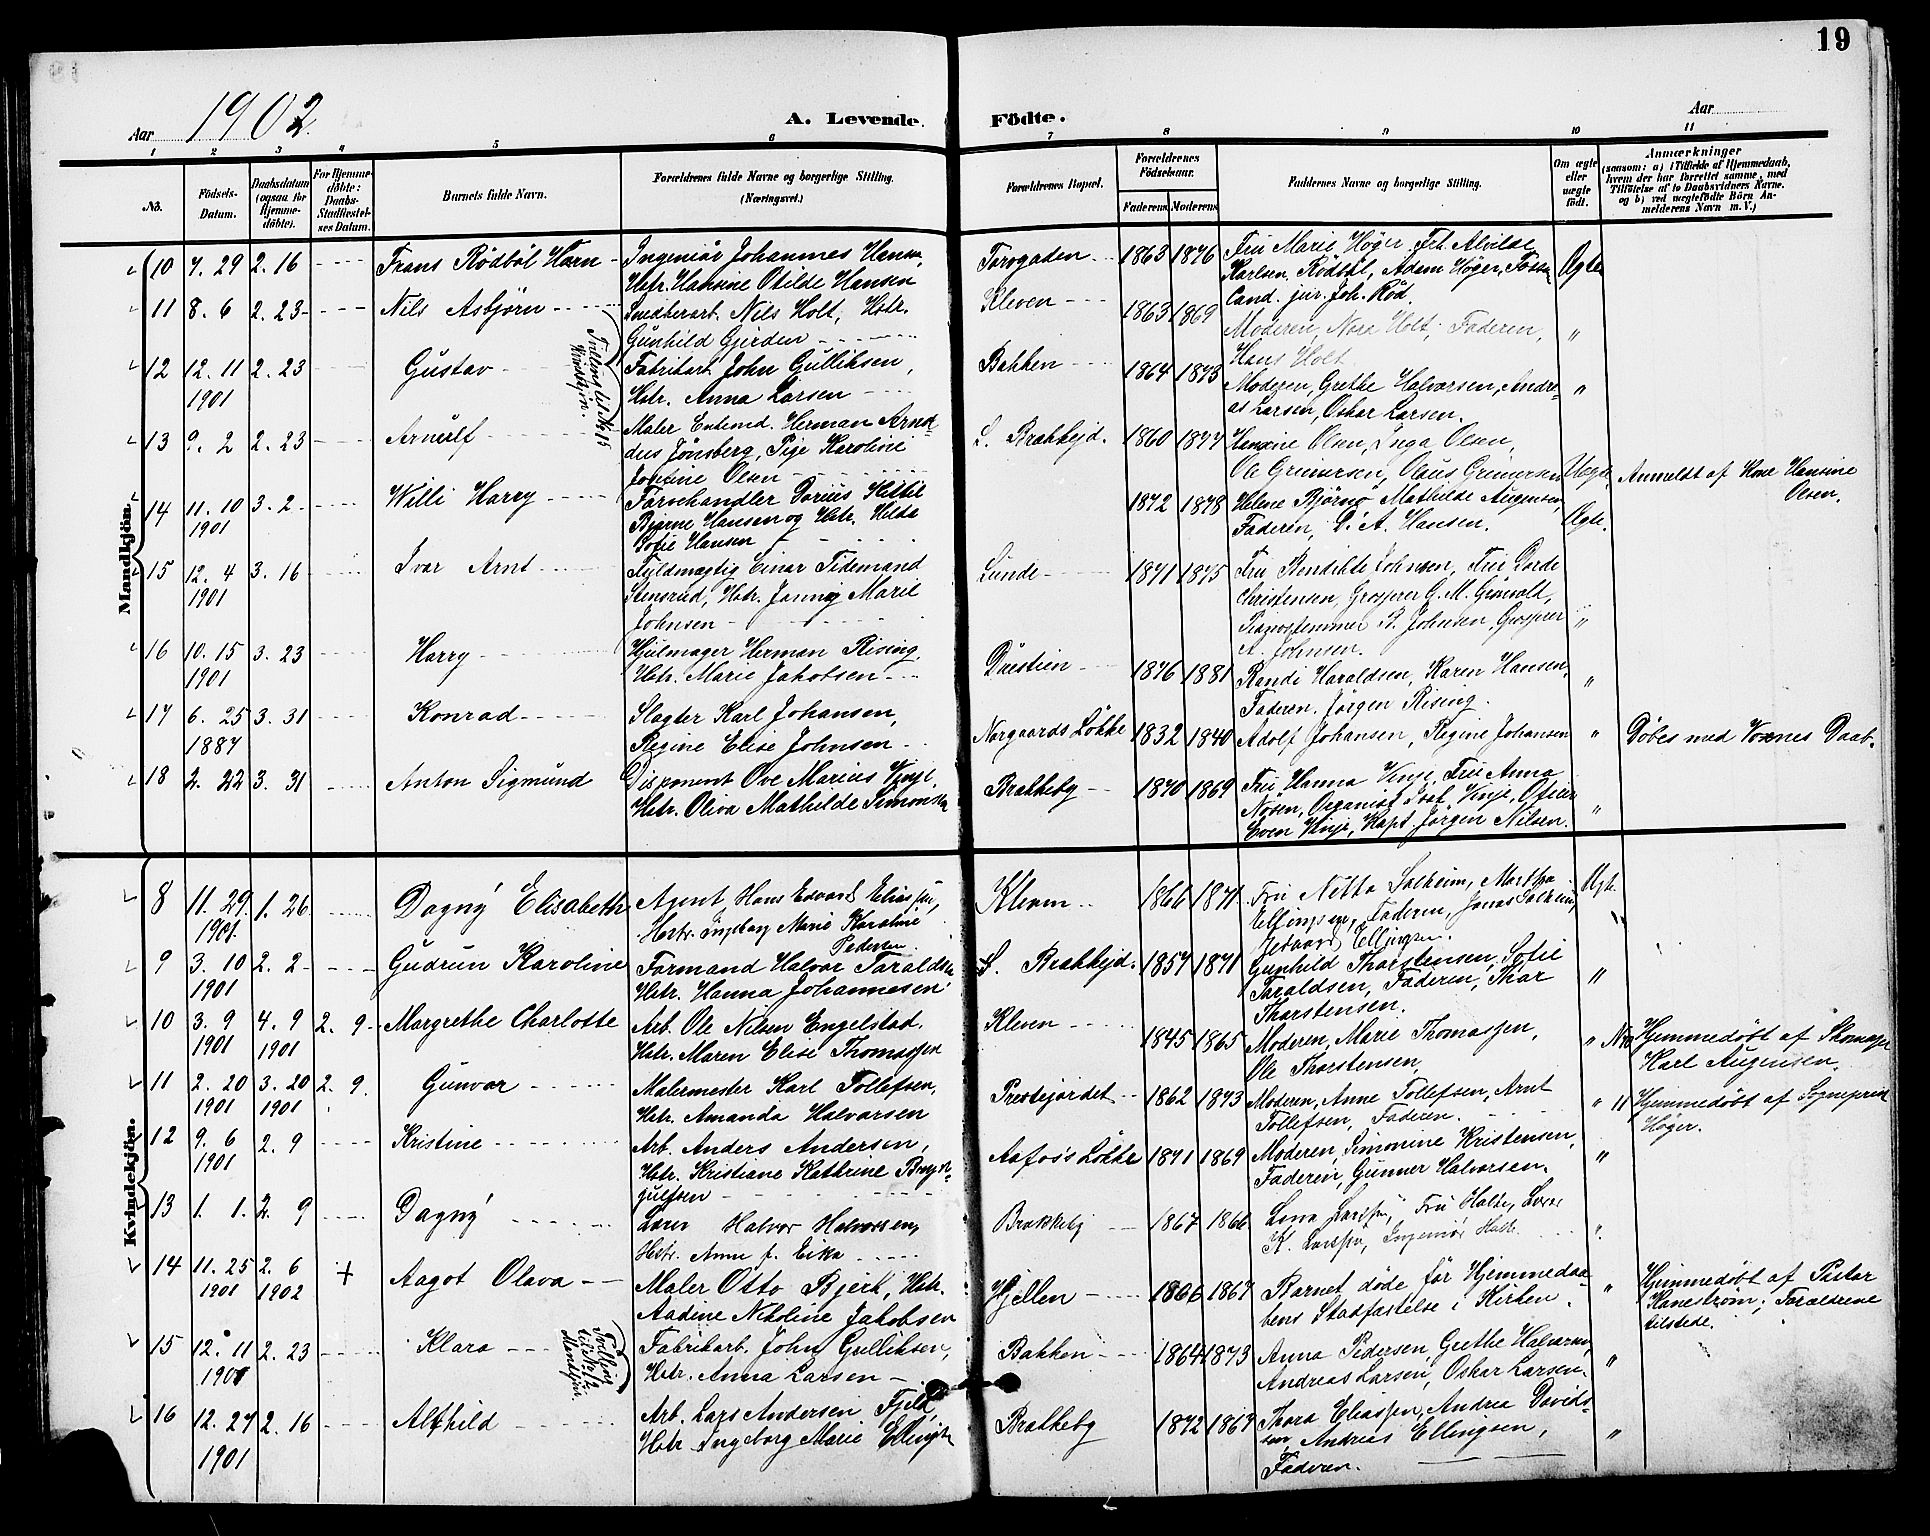 19
Aar 1902.
A. Levende Födte.
Aar
1 2 3 4 5 6 7 8 9 10 11
No.
Födsels-Datum.
Daabsdatum (ogsaa for Hjemmedöbte).
For Hjemmedöbte: Daabs-Stadfæstelses Datum.
Barnets fulde Navn.
Forældrenes fulde Navne og borgerlige Stilling. (Næringsvei.)
Forældrenes Bopæl.
Forældrenes Födselsaar.
Faderens Moderens
Faddernes Navne og borgerlige Stilling.
Om ægte eller uægte födt.
Anmærkninger
(saasom: a) i Tilfælde af Hjemmedaab, hvem der har forrettet samme, med Tilföielse af to Daabsvidners Navne. og b) ved uægtefödte Börn Anmelderens Navn m. V.)
Mandkjön.
10 7. 29 2. 16 Frans Rödböl Horn
Ingeniör Johannes Hansen,
Hstr. Hansine Otilde Hansen
Torvgaden 1863 1876
Fru Marie Höger, Frk. Alvilde
Karlsen, Rödböl, Adam Höger,
Cand. jur. Joh. Röd.
Ægte
11 8. 6 2. 23 Nils Asbjörn
Snedkerarb. Nils Holt, Hstr.
Gunhild Gjerden
Kleven 1863 1869
Moderen, Nora Holt, Faderen,
Hans Holt
"
12 12. 11 1901 2. 23 Gustav
Tvilling til No. 15 Kvindekjön.
Fabrikarb. John Gulliksen,
Hstr. Anna Larsen
Bakken 1864 1873
Moderen, Grethe Halvorsen, Andreas Larsen, Oskar Larsen.
"
13 9. 2 2. 23 Arnulf
Maler Enkemd. Herman Arnddus Jönsberg, Pige Karoline
Josefine Olsen
S. Brækkejd. 1860 1877
Hansine Olsen, Inga Olsen,
Ole Grimersen, Olaus Grimersen
Uægte
Anmeldt af Kone Hansine
Olsen.
14 11. 10 1901 3. 2 Willi Harry
Farvehandler Dorius Kittil
Bjarne Hansen og Hstr. Hilda
Sofie Hansen
1872 1878
Helene Björnö, Mathilde Augensen,
Faderen, D. A. Hansen.
Ægte.
15 12. 4 1901 3. 16 Ivar Arnt
Fuldmægtig Einar Tidemand
Stensrud, Hstr. Jenny Marie
Johnsen
Lunde 1871 1875
Fru Bendikte Johnsen, Fru Dorde
Christensen, Grosserer G. M. Grönvold,
Pianostemmer B. Johnsen, Grosserer
A. Johnsen.
"
16 10. 15 1901 3. 23 Harry
Hjulmager Herman Rising,
Hstr. Marie Jakobsen
Duestien 1876 1881
Randi Haraldsen, Karen Hansen,
Faderen, Jörgen Rising.
"
17 6. 25 1887 3. 31 Konrad
Slagter Karl Johansen,
Regine Elise Johnsen
Norgaards Lökke 1832 1840
Adolf Johansen, Regine Johansen
"
Döbes med Voxnes Daab.
18 2. 22 3. 31 Anton Sigmund
Disponent Ove Marius Vinje,
Hstr. Oliva Mathilde Simonsen
Brækkeby 1870 1869
Fru Hanna Vinje, Fru Anna
Nösen, Organist Vinje,
Even Vinje, Kapt. Jörgen Nilsen.
"
Kvindekjön.
8 11. 29. 1901. 1. 26 Dagny Elisabeth
Agent Hans Edvard Eliassen,
Hustr. Ingeborg Marie Karoline
Pedersen
Kleven 1866 1871
Fru Netta Solheim, Martha
Ellingsen, Faderen, Jonas Solheim,
Edvard Ellingsen.
Ægte.
9 3. 10 1901 2. 2 Gudrun Karoline
Formand Halvor Taraldsen
Hstr. Hanna Johannesen
S. Brækkejd. 1857 1871
Gunhild Thorstensen, Sofie
Taraldsen, Faderen, Thor
Thorstensen.
"
10 3. 9 1901 4. 9 1901 2. 9 Margrethe Charlotte
Arb. Ole Nilsen Engelstad,
Hstr. Maren Elise Thomassen
Kleven 1845 1865
Moderen, Marie Thomassen,
Ole Thorstensen,
"
Hjemmedöbt af
Karl Augensen.
11 2. 20 1901 3. 20 1901 2. 9. Gunvor
Malermester Karl Tollefsen,
Hstr. Amanda Halvorsen
Prestejordet 1862 1873
Moderen, Anne Tollefsen, Arnt
Tollefsen, Faderen.
"
Hjemmedöbt af Sogneprest
Höger.
12 9. 6 1901 2. 9 Kristine
Arb. Anders Andersen,
Hstr. Kristiane Kathrine Brynjulfsen
Aafos's Lökke 1871 1869
Moderen, Simonine Kristensen,
Faderen, Gunner Halvorsen.
"
13 1. 1. 2. 9 Dagny
Lærer Halvor Halvorsen,
Hstr. Anne f. Eika
Brækkeby 1867 1866
Lova Larssen, Fru Halse, Lærer
K. Larssen, Ingeniör Halse.
"
14 11. 25 1901 2. 6 1902 + Aagot Olava
Maler Otto Bjerk, Hstr.
Aadine Nikoline Jakobsen
Hjellen 1866 1867
Barnet döde för Hjemmedaabens Stadfæstelse i Kirken.
"
Hjemmedöbt af Pastor
Kaneström; Forældrene
tilstede.
15 12. 11 1901 2. 23 Klara
Tvilling til No. 12 Mandkjön
Fabrikarb. John Gulliksen,
Hstr. Anna Larsen
Bakken 1864 1873
Anna Pedersen, Grethe Halvorsen,
Andreas Larsen, Oskar Larsen.
"
16 12. 27 1901 2. 16 Alfhild
Arb. Lars Andersen Fjeld,
Hstr. Ingeborg Marie Ellingsen
Brækkeby 1872 1867
Thora Eliassen, Andrea Davidssen, Andreas Ellingsen,
Faderen.
"